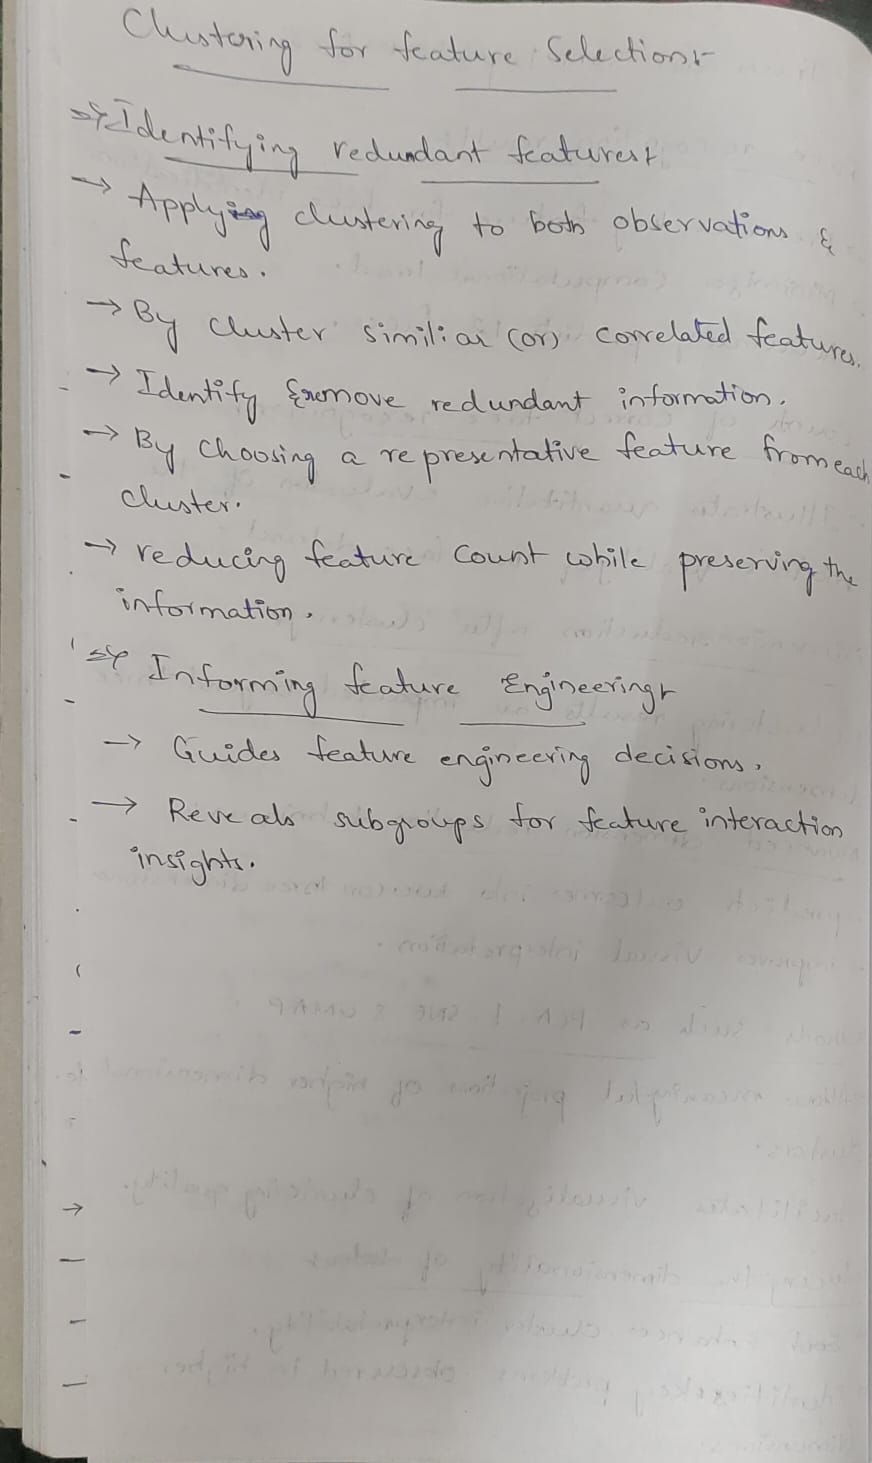 Clustering for feature Selection:-
=> Identifying redundant features:-
→ Applying clustering to both observations &
features.
→ By cluster similiar (or) correlated features.
→ Identify & remove redundant information.
→ By choosing a representative feature from each
cluster.
→ reducing feature count while preserving the
information.
=> Informing feature Engineering:-
→ Guides feature engineering decisions.
→ Reveals subgroups for feature interaction
insights.